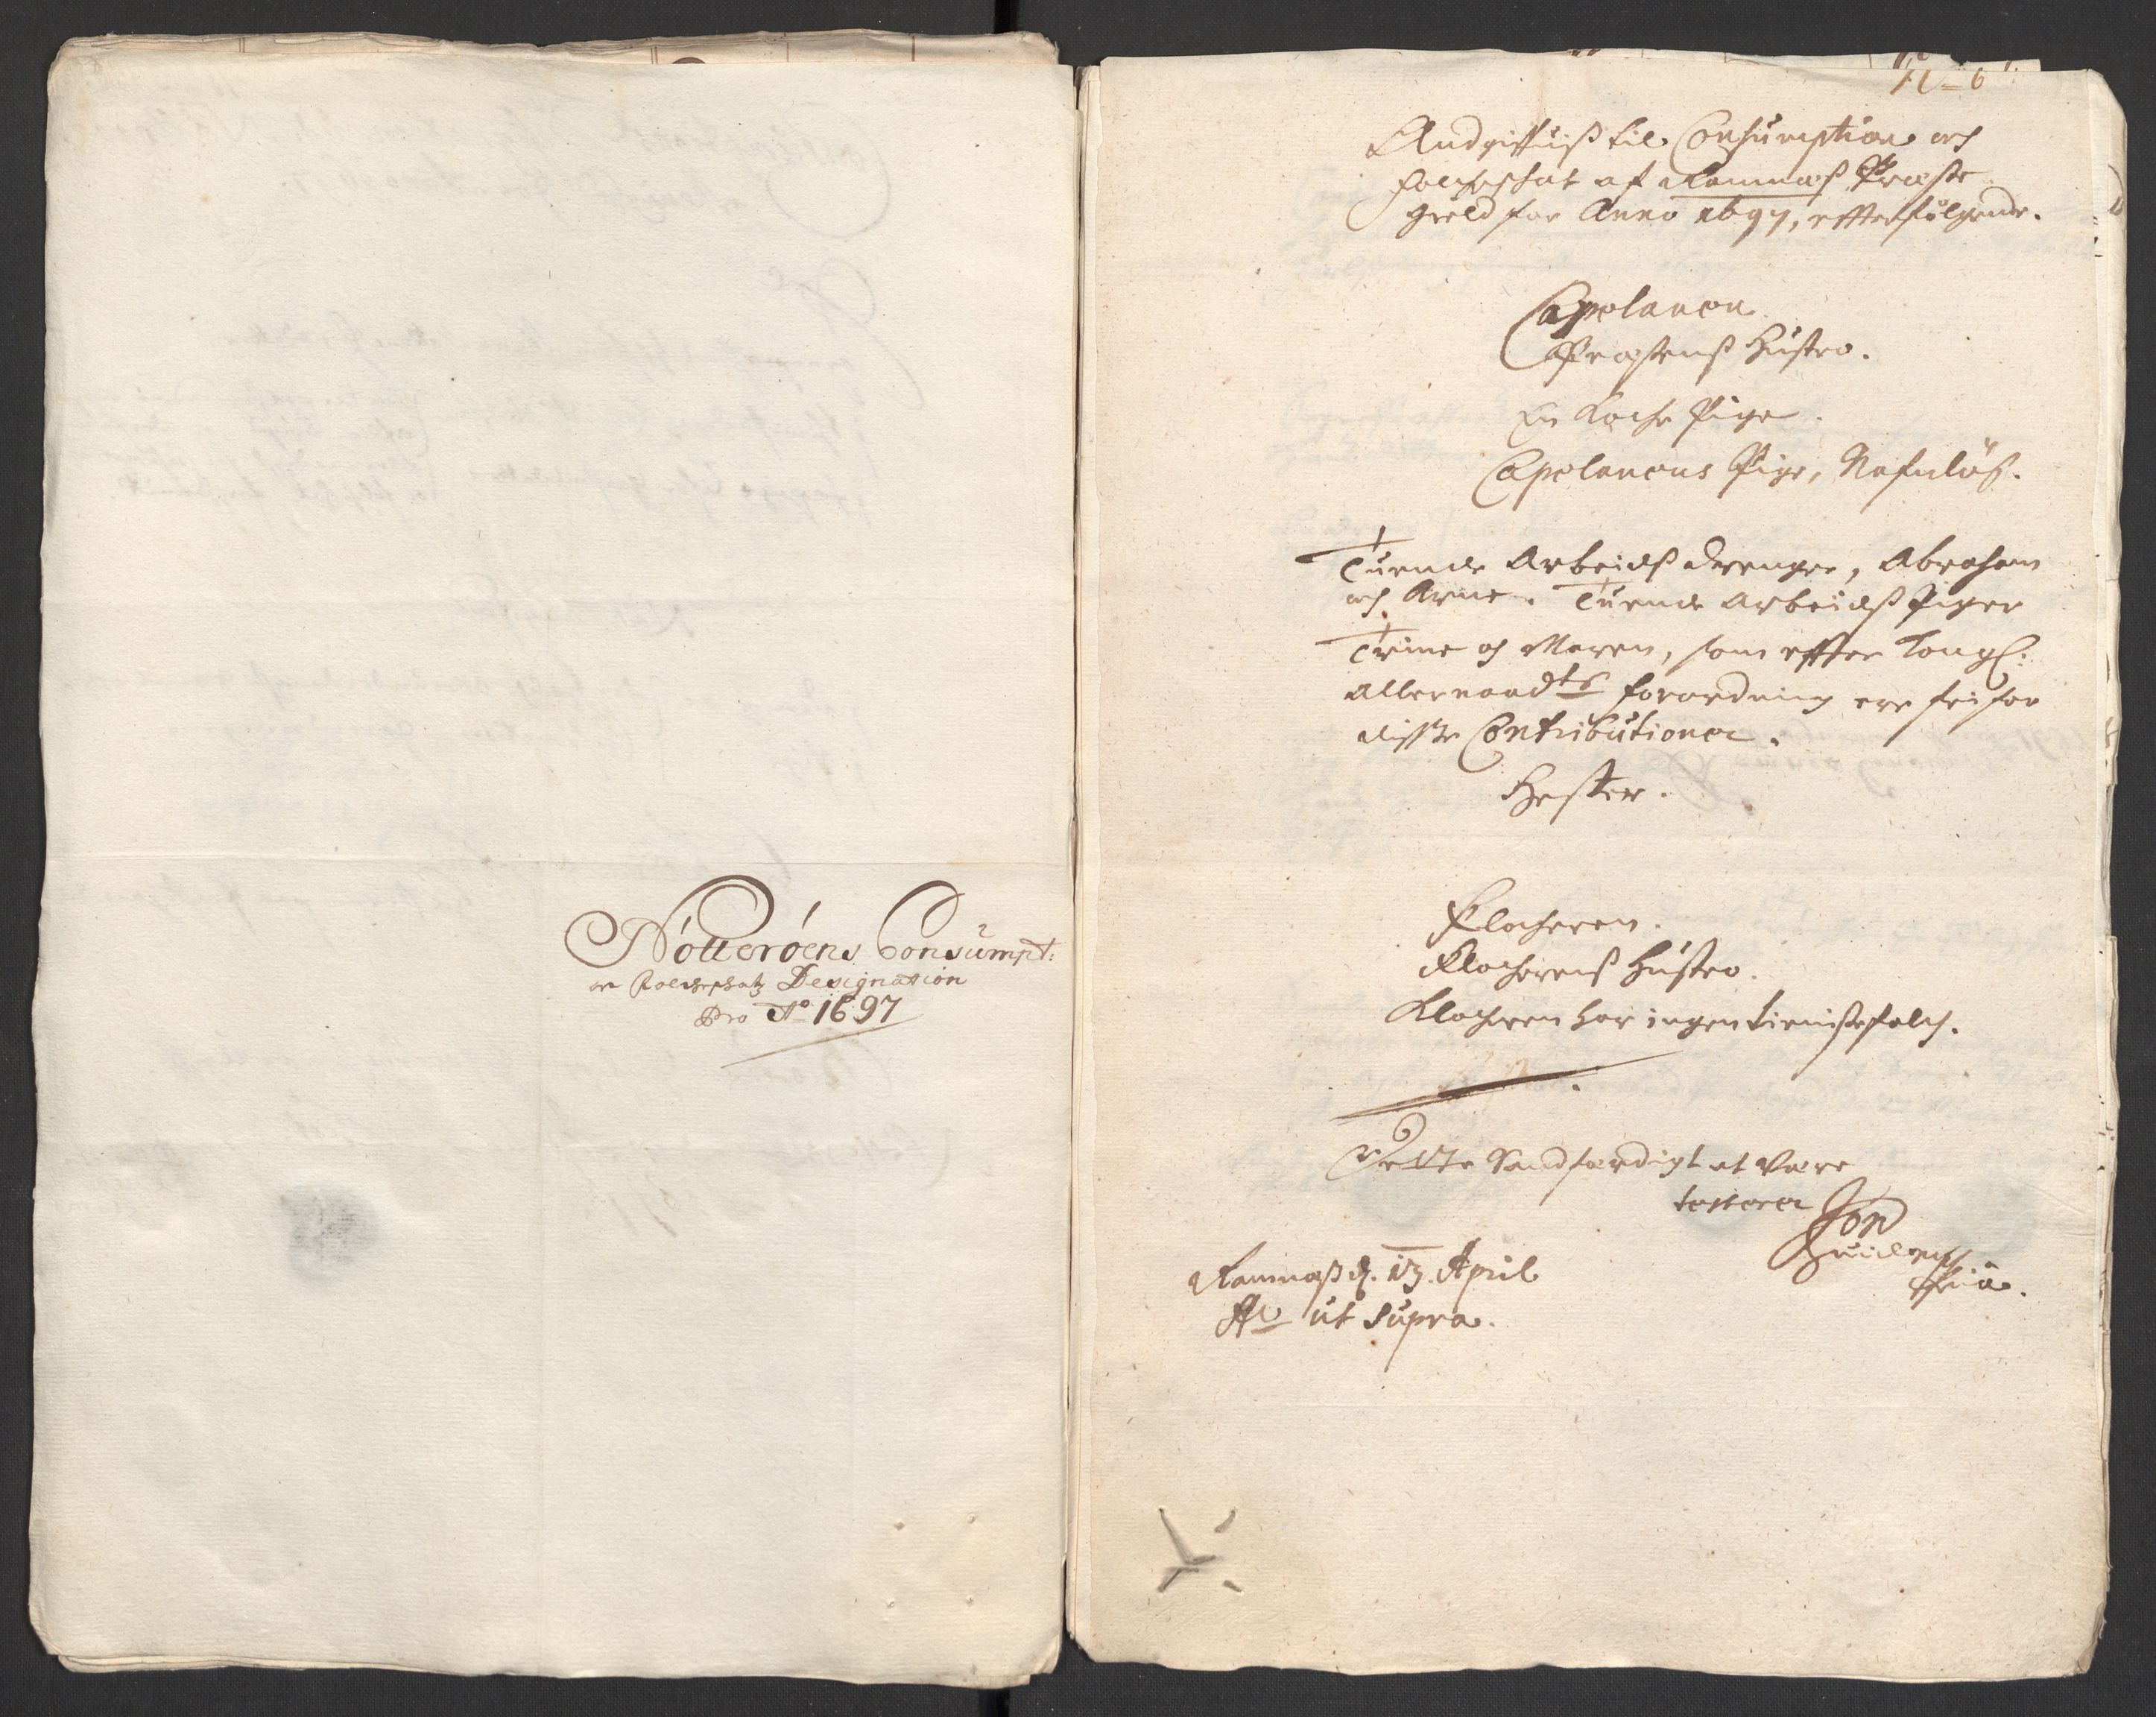 Nötteröens Consumpt:
oc Folcheschatz Designation
Pro Ao 1697
No 6
Andgiffuiß til Consumption och
Folcheschat af Ramnæß Præste
gield for Anno 1697, effterfølgende.
Capelanen
Præstenß Hustro.
En Koche Pige.
Capelanens Pige, Nafnløs.
Tuende Arbeidß drenger, Abraham
och Arne. Tuende Arbeidß Piger
Trine og Maren, som effter Kongl:
allernaadts forordning ere fri for
disse Contributioner.
Hester.
Klocheren.
Klocherenß Hustro.
Klocheren har ingen tienistefolch.
Dette Sandferdigt at Være
testerer Jon
Ramnæß d. 13. April
Ao ut Supra.